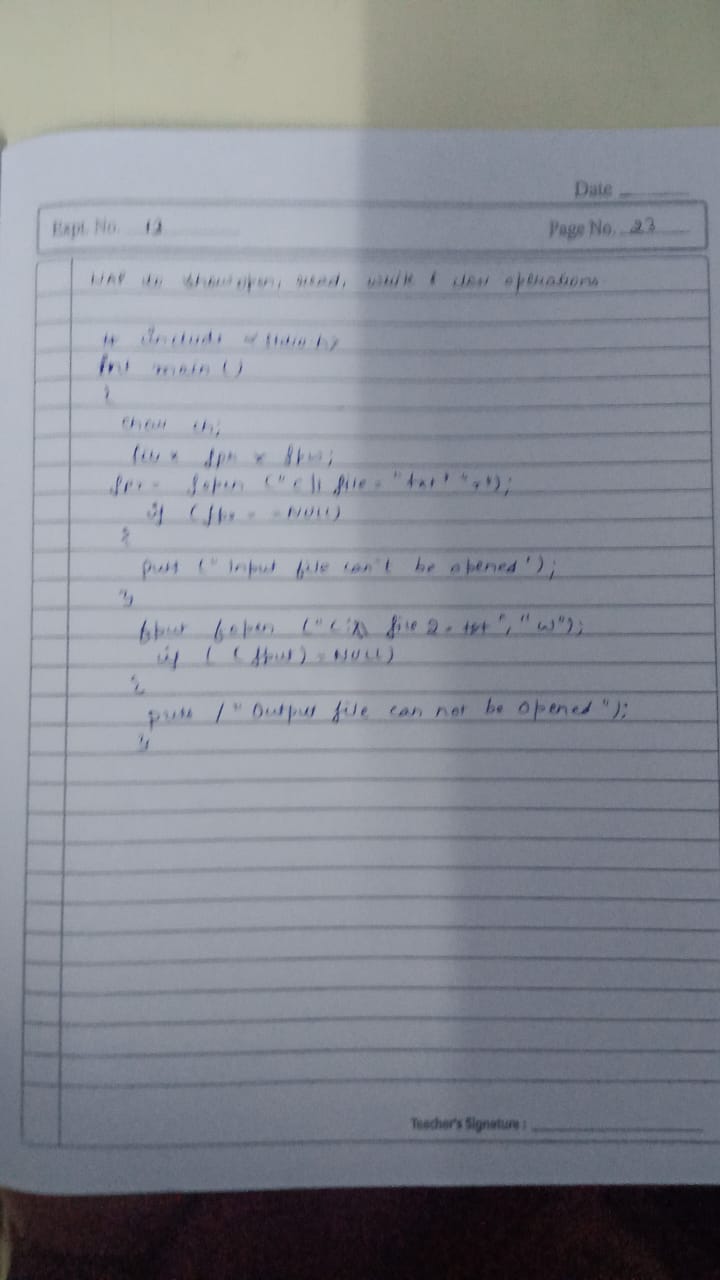 Date
Expt. No. 12
Page No. 23
WAP to show open, read, write & close operations
# Include <stdio.h>
Int main ()
{
char ch;
* fpr * fpw;
fopen ("C:\\ file "txt" "r");
if (fpr = = NULL)
{
puts (" Input file can't be opened');
}
fput fopen ("C:\\ file 2. txt", "w");
if ( ( fput) = NULL)
{
puts (" Output file can not be opened ");
}
Teacher's Signature :